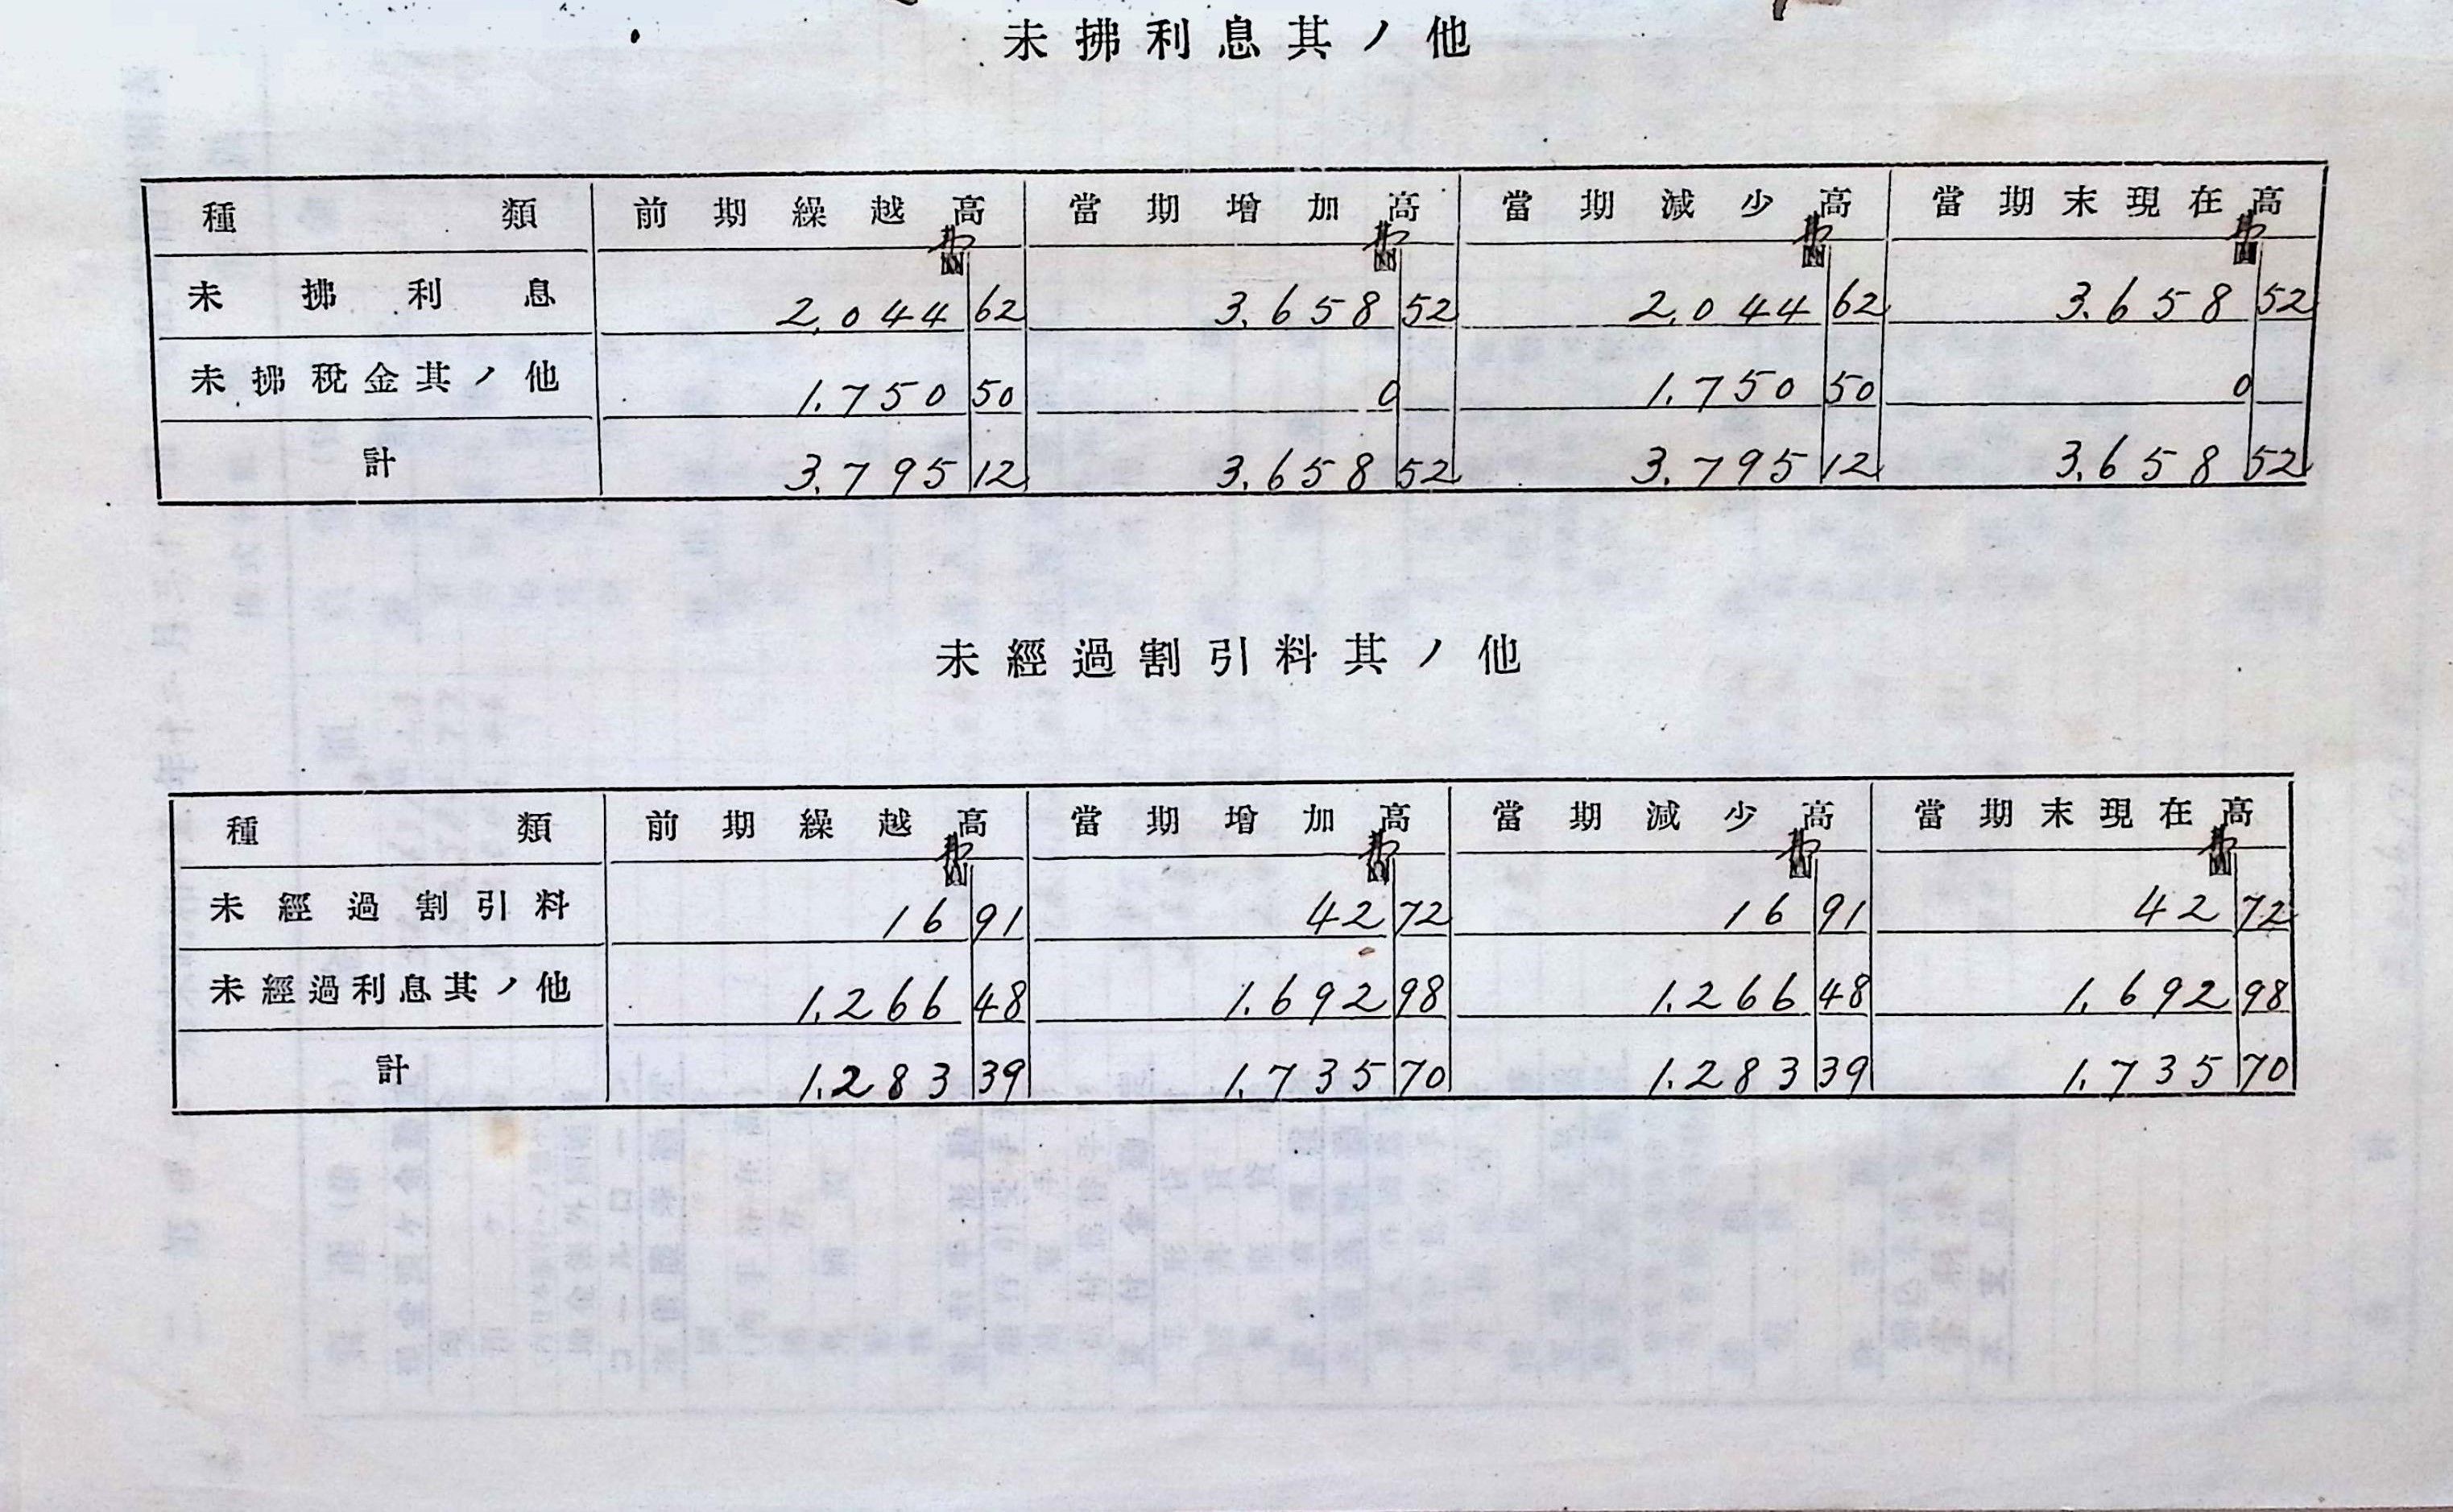 未拂利息其ノ他
種類 前期繰越高 當期增加高 當期減少高 當期末現在高
未拂利息 2,044 62 3.658 52 2,044 62 3.658 52
未拂稅金其ノ他 1.750 50 0 1.750 50 0
計 3.795 12 3.658 52 3.795 12 3.658 52
未經過割引料其ノ他
種類 前期繰越高 當期增加高 當期減少高 當期末現在高
未經過割引料 16 91 42 72 16 91 42 72
未經過利息其ノ他 1.266 48 1.692 98 1.266 48 1.692 98
計 1.283 39 1.735 70 1.283 39 1.735 70